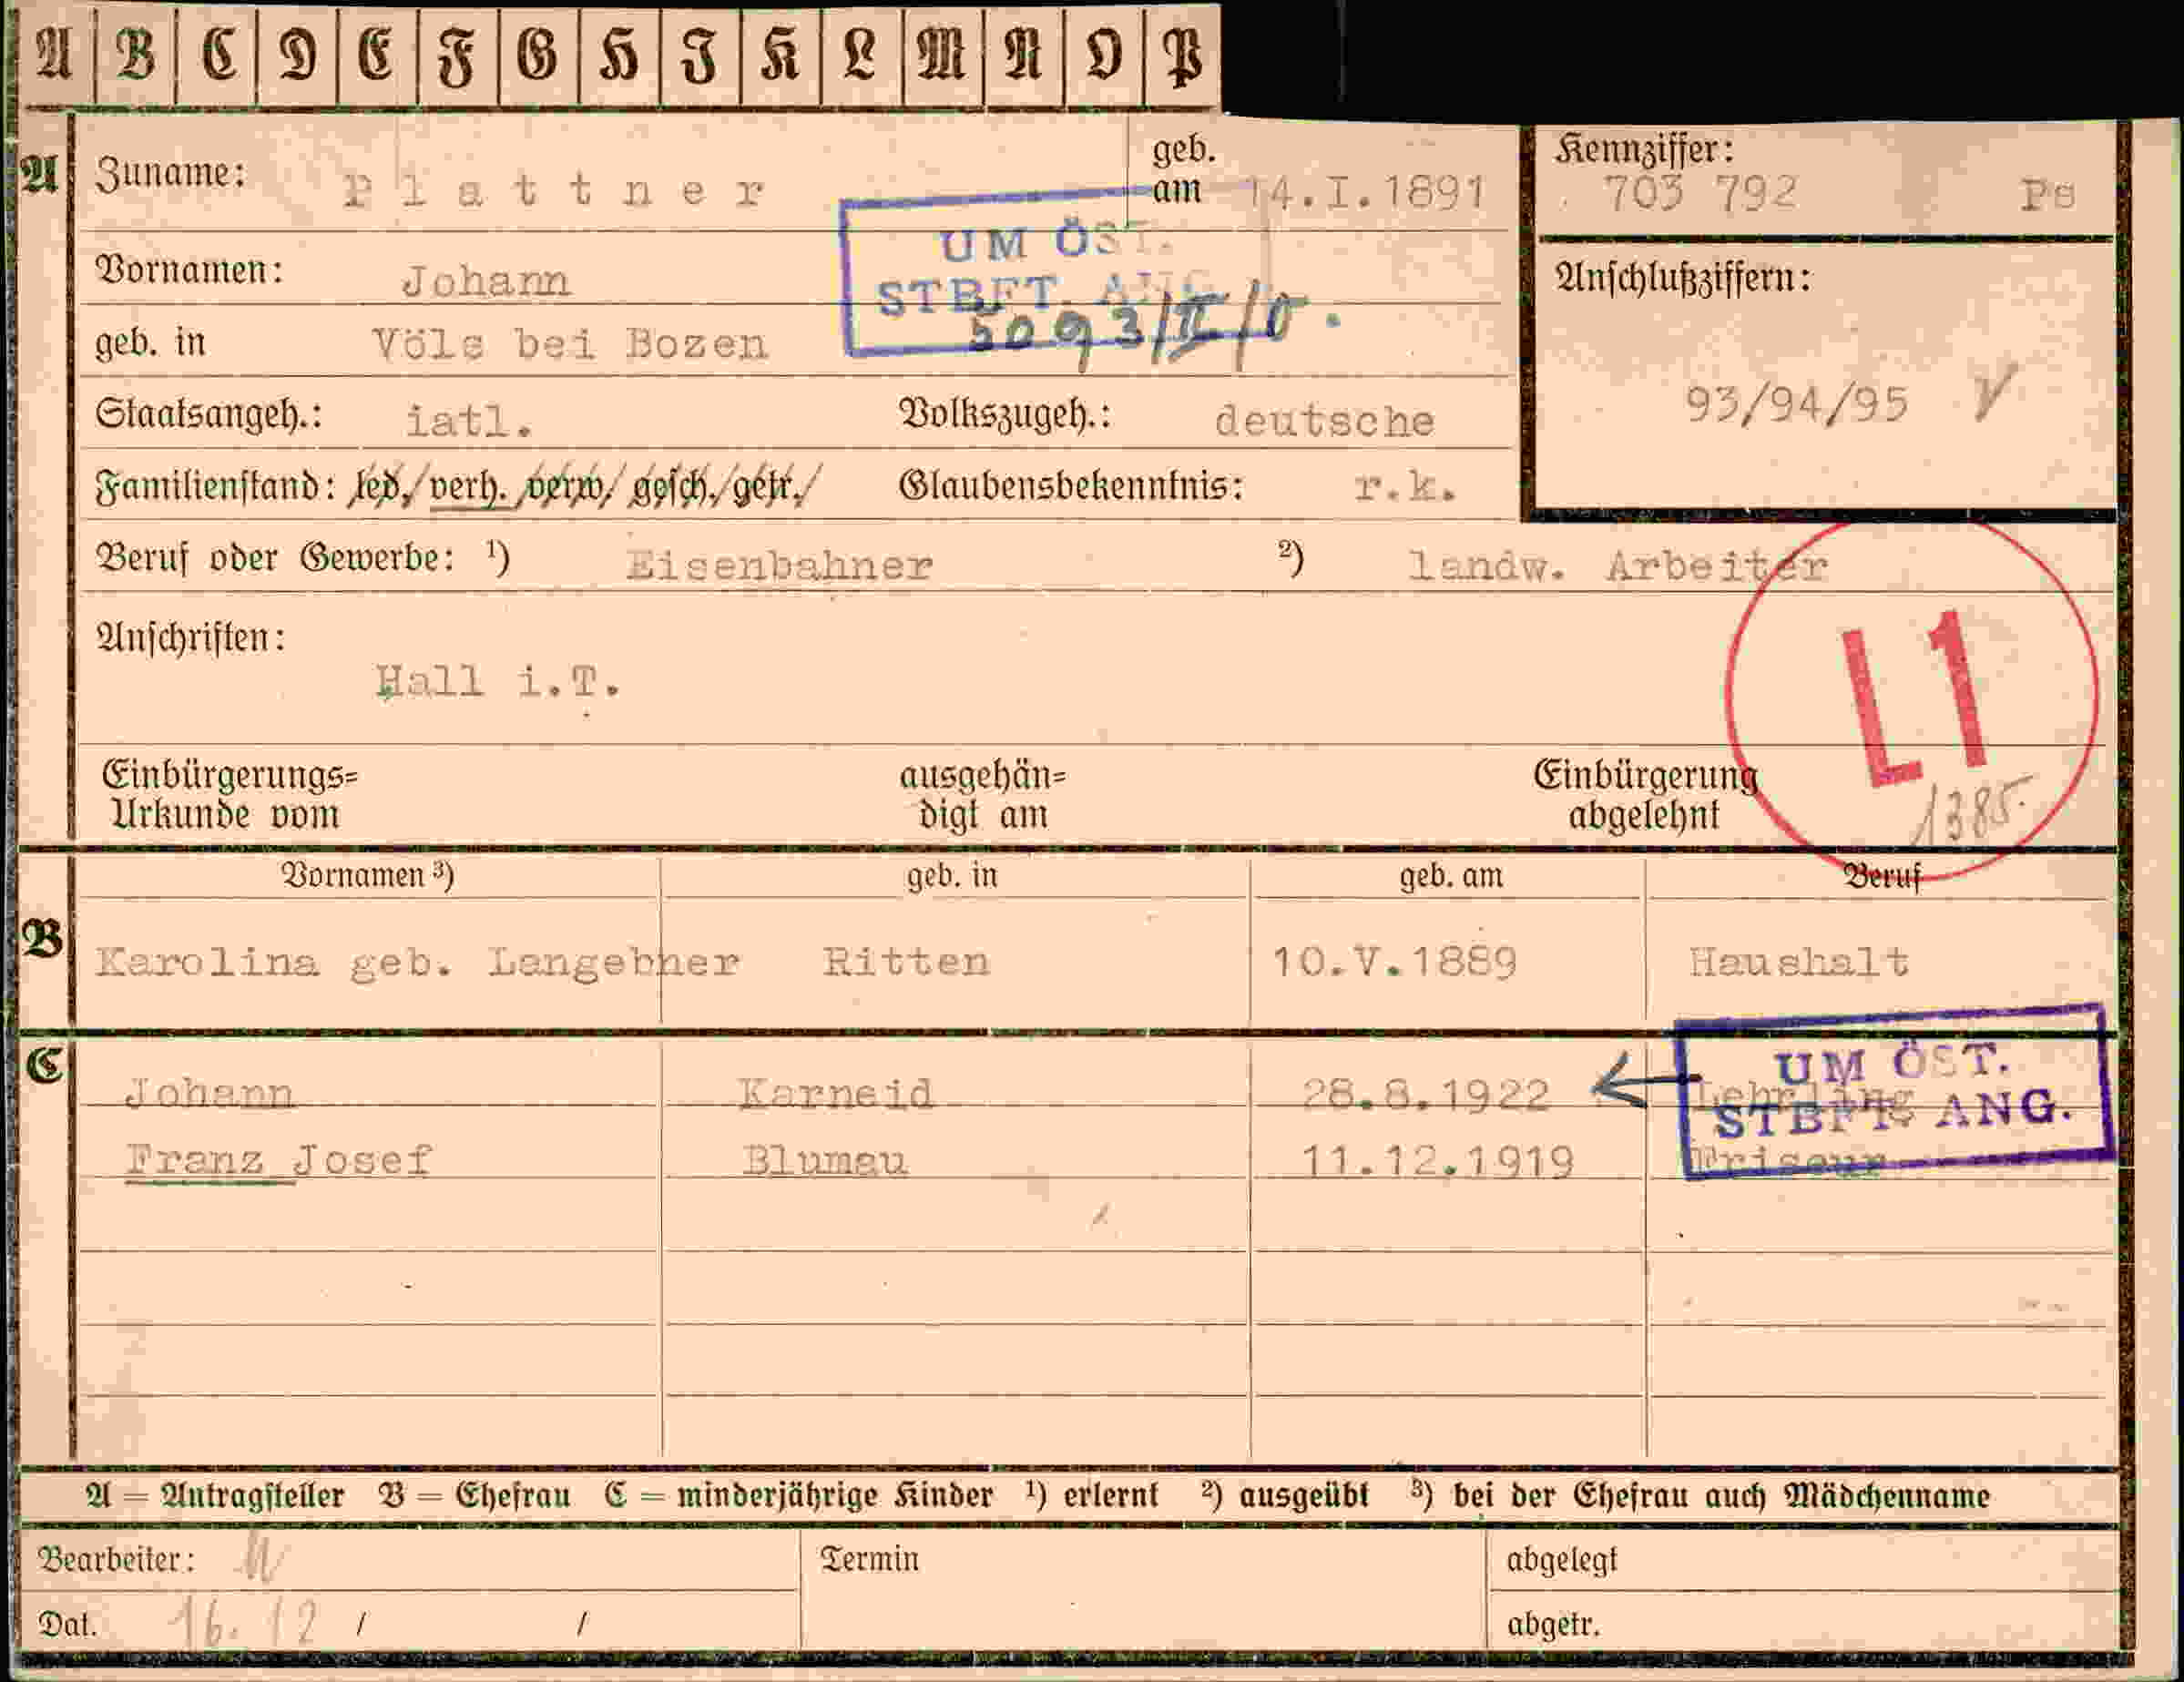 A B C D E F G H I K L M N O P
A Zuname: Plattner geb. am 14.I.1891 Kennziffer: 703 792 Ps
UM ÖST.
STBFT. ANG.
5093/II/0.
Vornamen: Johann
Anschlußziffern:
geb. in Völs bei Bozen
93/94/95
Staatsangeh.: iatl. Volkszugeh.: deutsche
Familienstand: led./verh. verw/gesch./getr./ Glaubensbekenntnis: r.k.
Beruf oder Gewerbe: ¹) Eisenbahner ²) landw. Arbeiter
Anschriften:
Hall i.T.
L1
1385.
Einbürgerungs= ausgehän= Einbürgerung
Urkunde vom digt am abgelehnt
Vornamen ³) geb. in geb. am Beruf
B Karolina geb. Langebner Ritten 10.V.1889 Haushalt
C
UM ÖST.
STBFT ANG.
Johann Karneid 28.8.1922 Lehrling
Franz Josef Blumau 11.12.1919 Friseur
A = Antragsteller B = Ehefrau C = minderjährige Kinder ¹) erlernt ²) ausgeübt ³) bei der Ehefrau auch Mädchenname
Bearbeiter: Termin abgelegt
Dat. 16.12 / / abgetr.